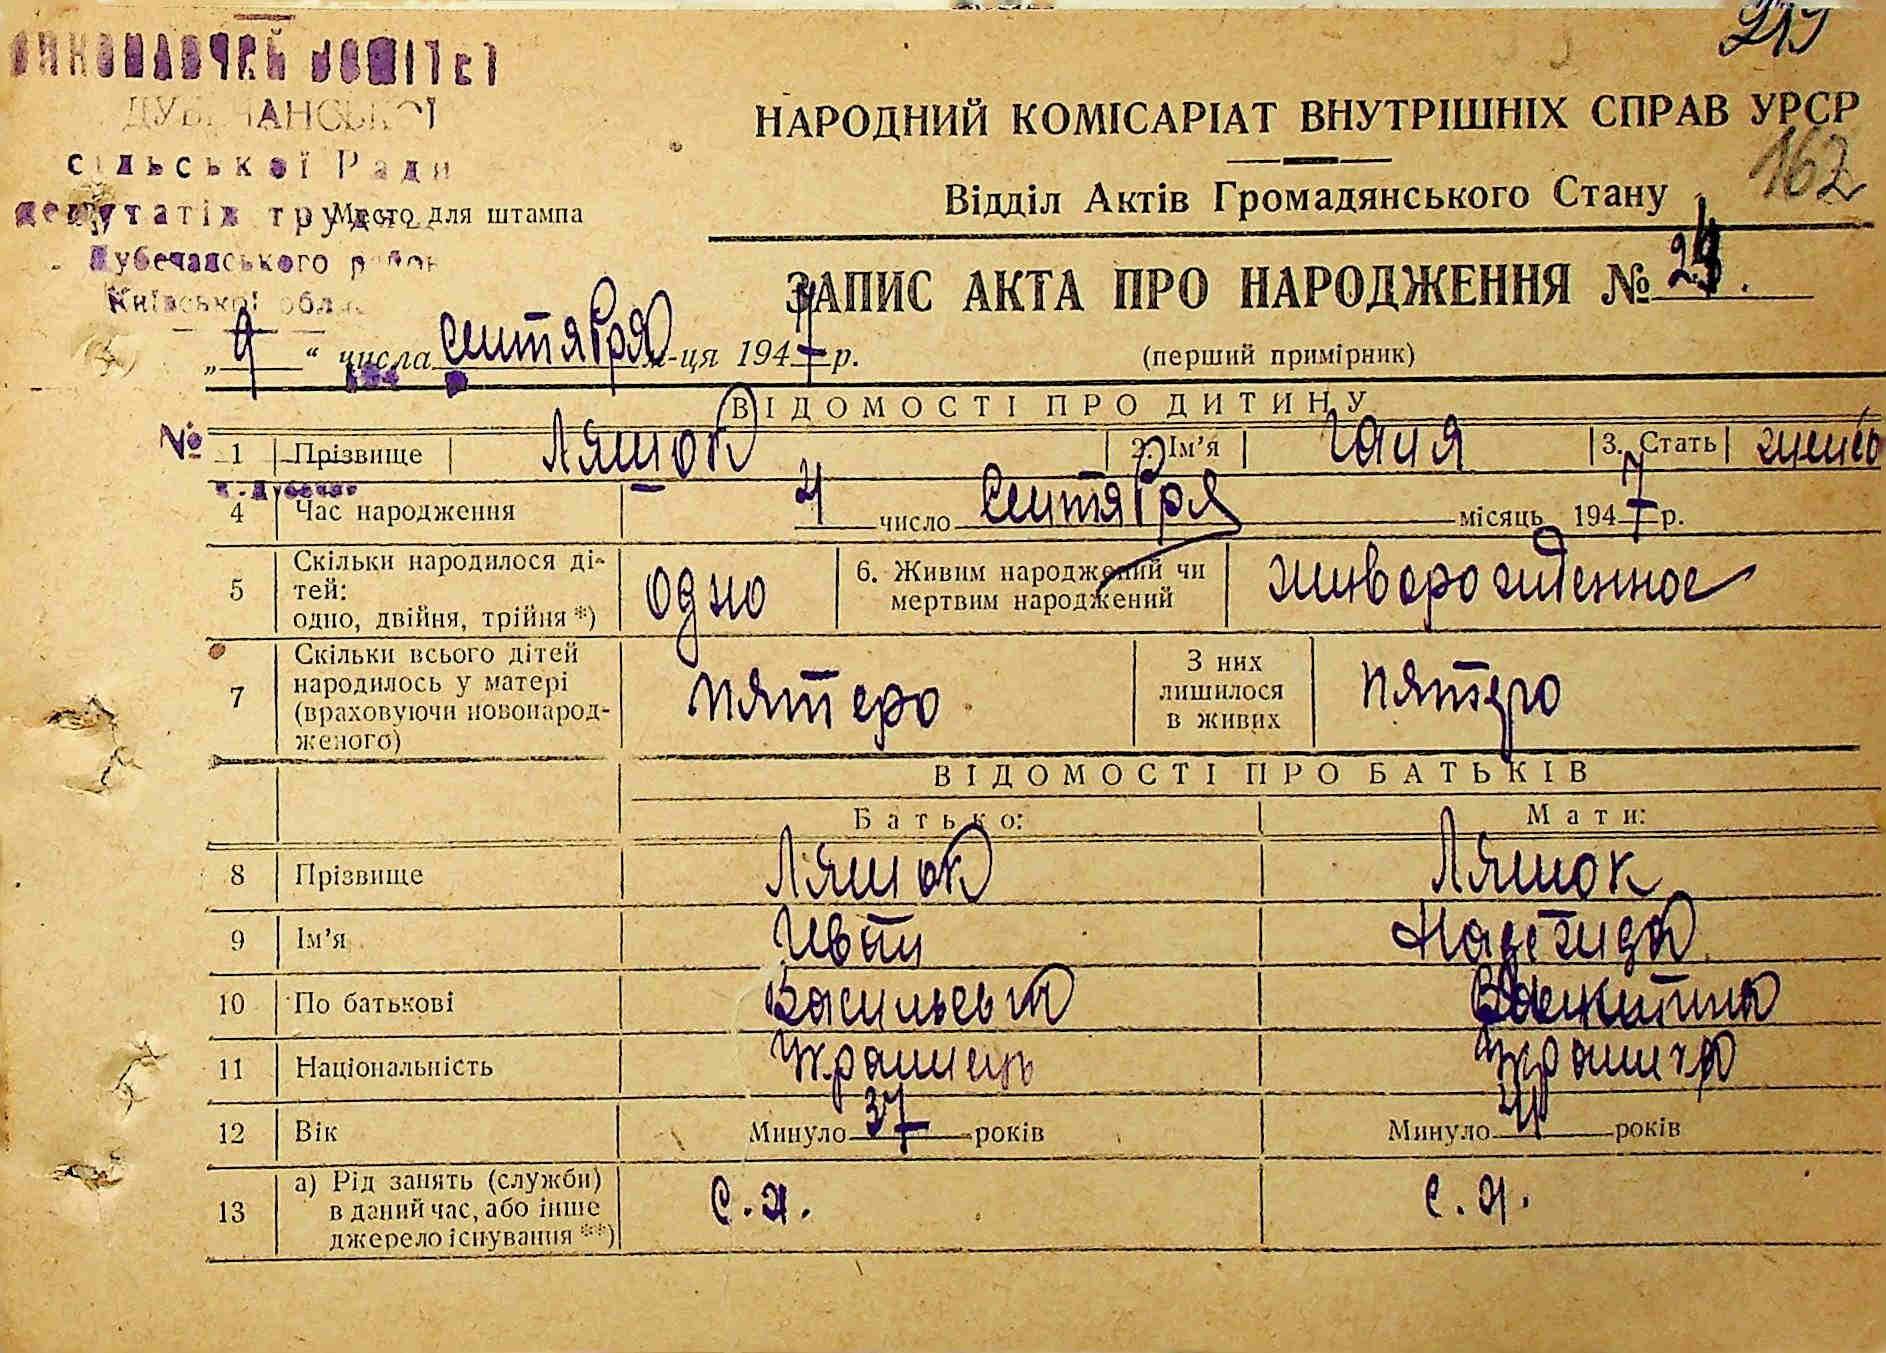 виконавчий комітет
ДУБЕЧАНСЬКОЇ
сільської Ради
депутатів труд
Место для штампа
Дубечанського район
Київської обл
НАРОДНИЙ КОМІСАРІАТ ВНУТРІШНІХ СПРАВ УРСР
162
Відділ Актів Громадянського Стану
ЗАПИС АКТА ПРО НАРОДЖЕННЯ №
„9“ числа сентября м-ця 1947 р.
(перший примірник)
ВІДОМОСТІ ПРО ДИТИНУ
№
1 Прізвище Ляшок 2. Ім’я Галя 3. Стать женс
4 Час народження 4 число сентября місяць 1947 р.
5 Скільки народилося ді-
тей:
одно, двійня, трійня *)
одно
6. Живим народжений чи
мертвим народжений
живорожденное
7 Скільки всього дітей
народилось у матері
(враховуючи новонарод-
женого)
пятеро
З них
лишилося
в живих
пятеро
ВІДОМОСТІ ПРО БАТЬКІВ
Батько: Мати:
8 Прізвище Ляшок Ляшок
9 Ім’я Иван Надежда
10 По батькові Васильевич
11 Національність Украинец Украинка
12 Вік Минуло 37 років Минуло років
13 а) Рід занять (служби)
в даний час, або інше
джерело існування **)